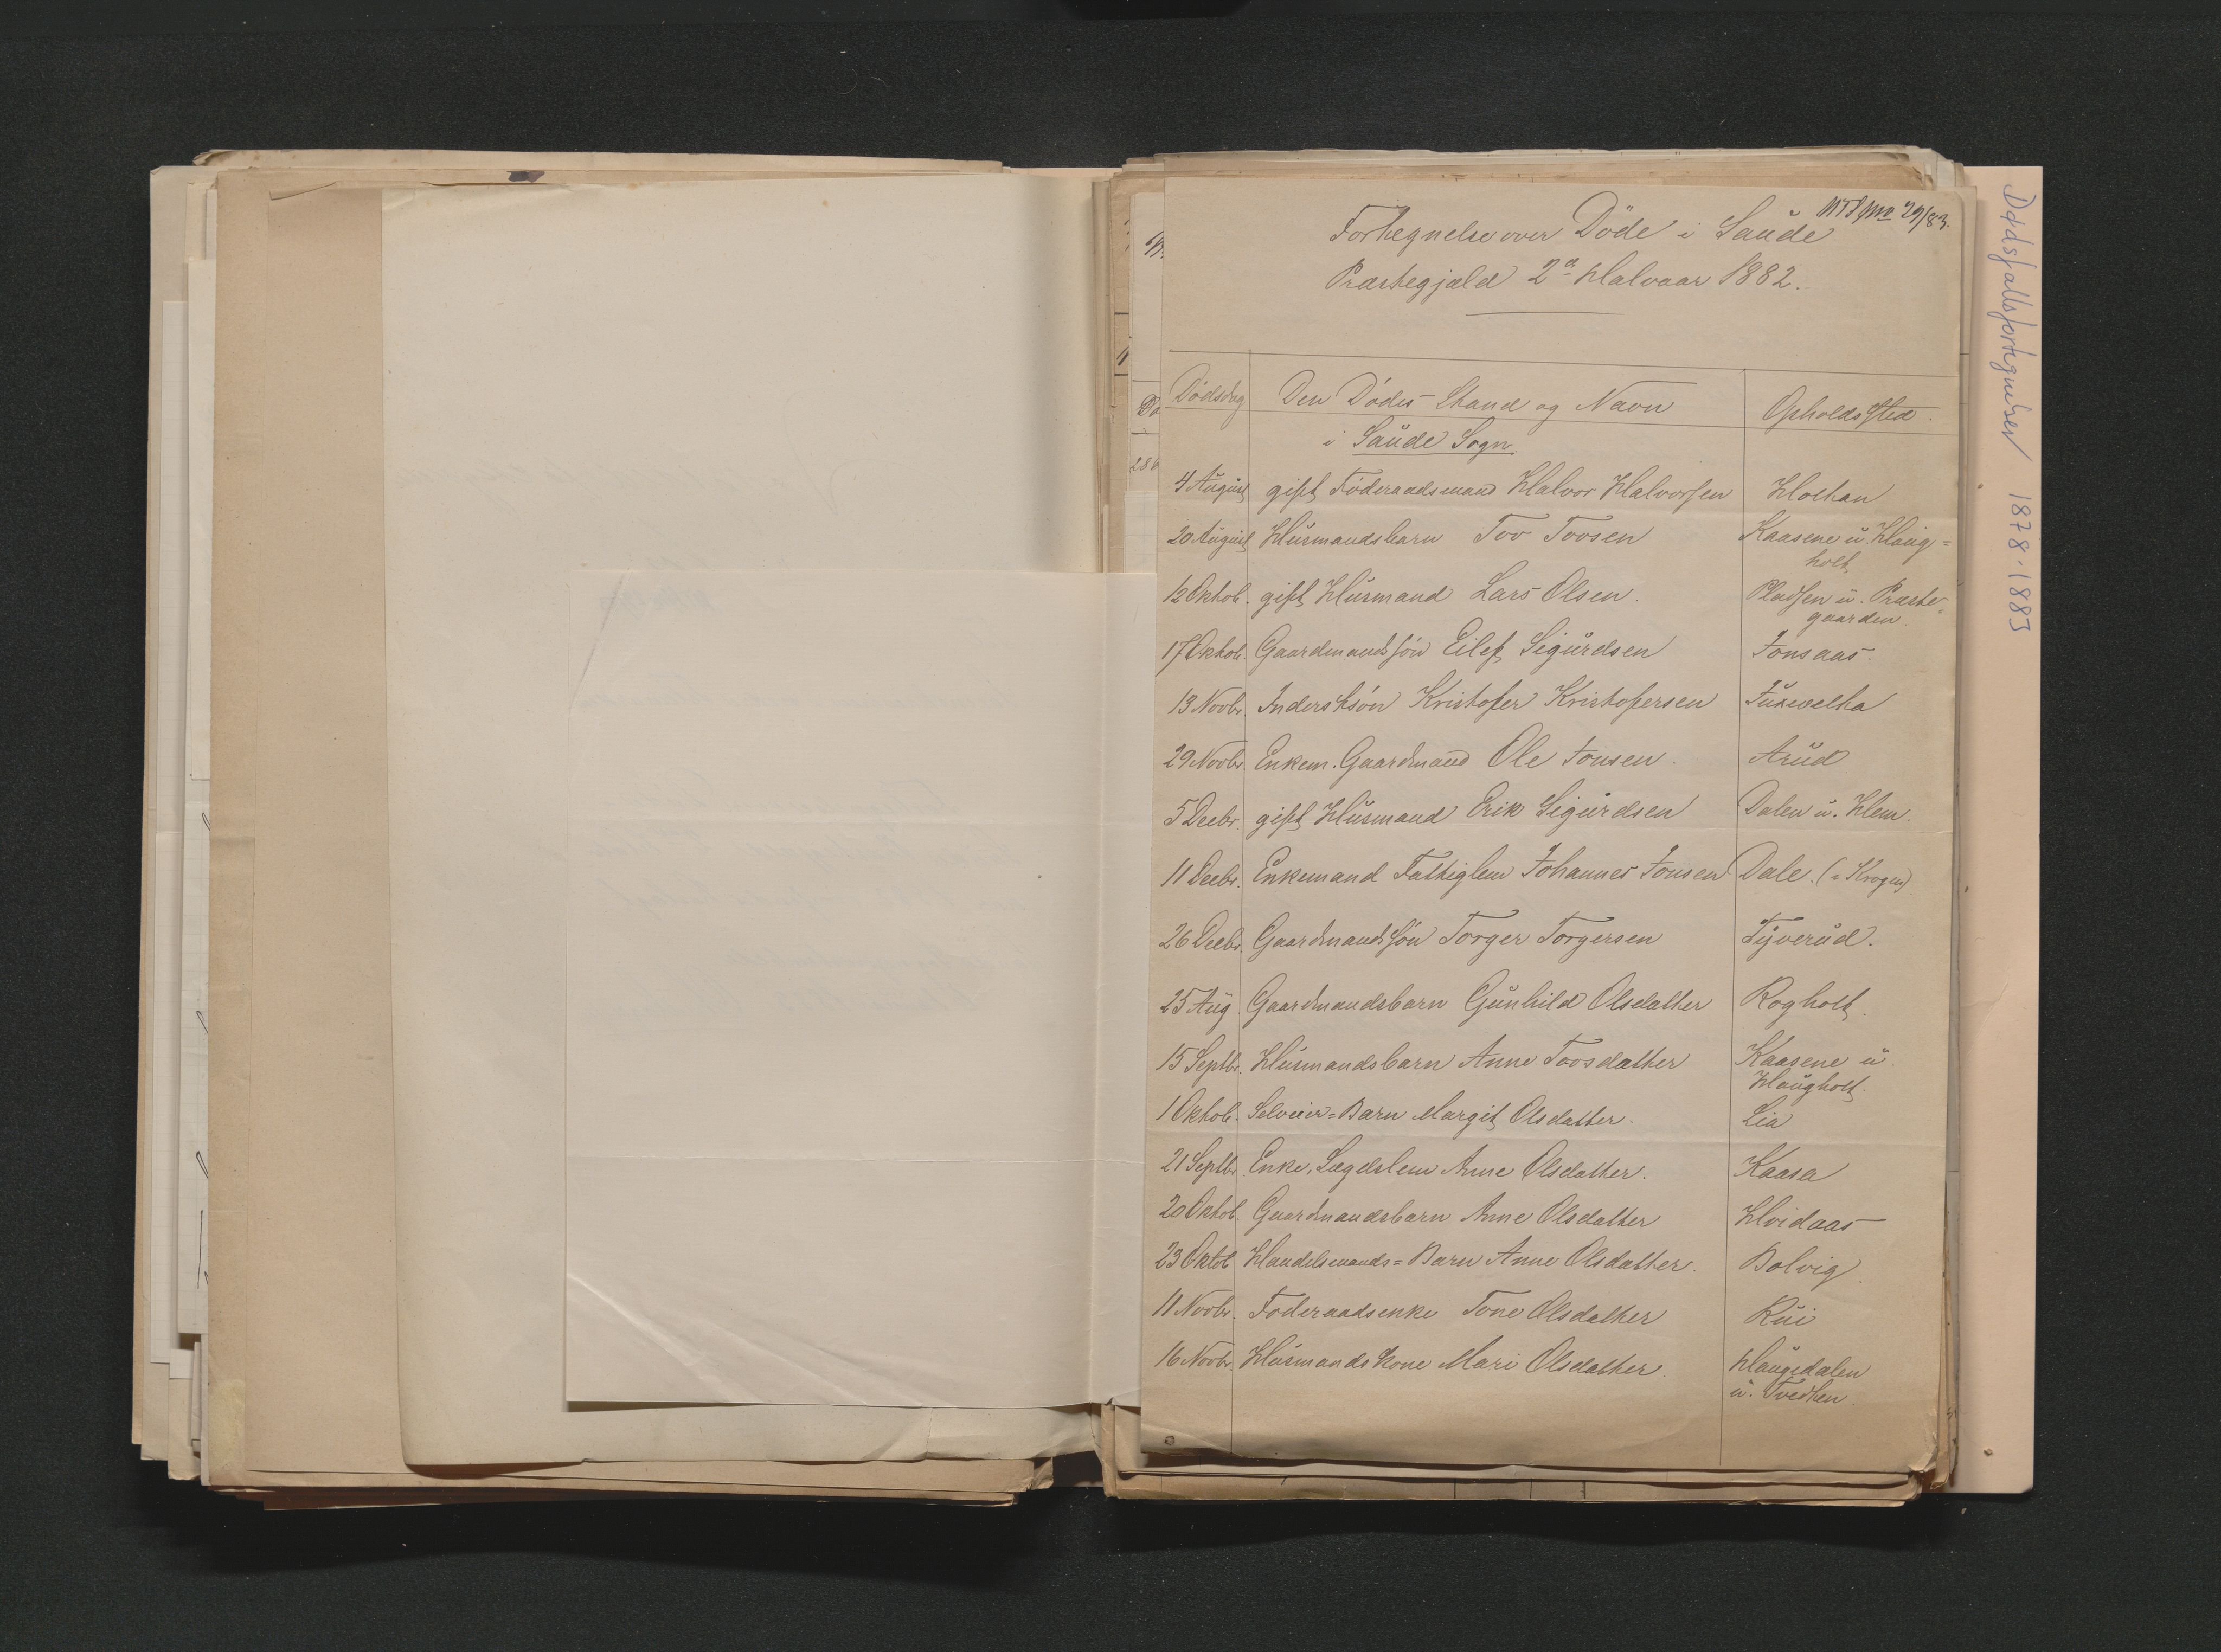 Fortegnelse over Döde i Saude
Præstegjæld 2d Halvaar 1882.
Dödsdag Den Dödes Stand og Navn Opholdssted.
i Saude Sogn.
4 August gift Föderaadsmand Halvor Halvorsen Holtan
20 August Husmandsbarn Tov Tovsen Kaasene u. Haug=
holt
12 Oktob. gift Husmand Lars Olsen. Pladsen u. Præste=
gaarden.
17 Oktob. Gaardmandssön Eilef Sigurdsen Jonsaas.
13 Novbr. Inderstsön Kristofer Kristofersen
29 Novbr. Enkem. Gaardmand Ole Jonsen. Arud
5 Decbr. gift Husmand Erik Sigurdsen Dalen u. Hem.
11 Decbr. Enkemand Fattiglem Johannes Jonsen Dale. (
26 Decbr. Gaardmandssön Torger Torgersen Tyverud.
25 Aug Gaardmandsbarn Gunhild Olsdatter Rogholt.
15 Septbr. Husmandsbarn Anne Tovsdatter Kaasene u.
Haugholt.
1 Oktob. Selveier=Barn Margit Olsdatter. Lia
21 Septbr. Enke, Lægdslem Anne Olsdatter. Kaasa
20 Oktob. Gaardmandsbarn Anne Olsdatter Hvidaas
23 Oktob Handelsmands=Barn Anne Olsdatter. Bolvig
11 Novbr. Föderaadsenke Tone Olsdatter Rui
16 Novbr. Husmandskone Mari Olsdatter. Haugedalen
u. Tvedten.
Dødsfallsfortegnelser 1878-1883